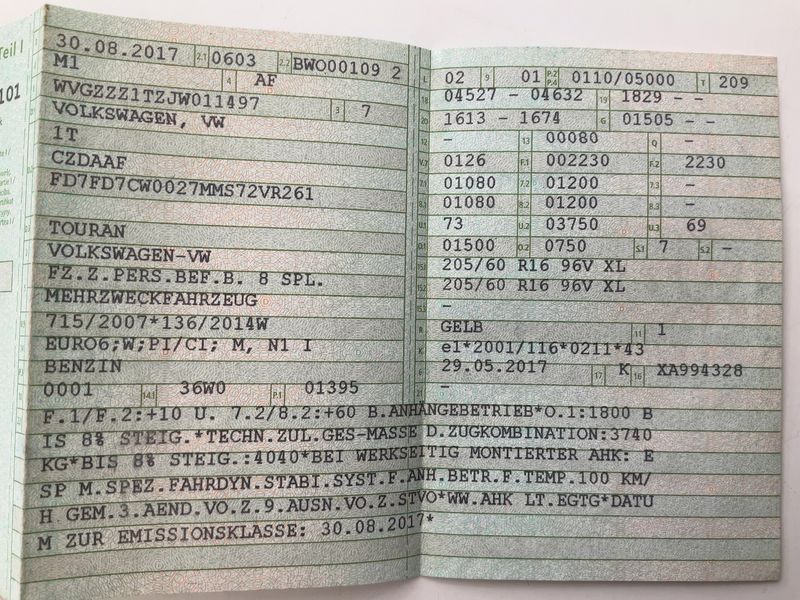 Teil I
101
30.08.2017 2.1 0603 2.2 BWO00109 2
M1 4 AF
WVGZZZ1TZJW011497 3 7
VOLKSWAGEN, VW
1T
CZDAAF
FD7FD7CW0027MMS72VR261
TOURAN
VOLKSWAGEN-VW
FZ.Z.PERS.BEF.B. 8 SPL.
MEHRZWECKFAHRZEUG
715/2007*136/2014W
EURO6;W;PI/CI; M, N1 I
BENZIN
0001 14.1 36W0 P.1 01395
L 02 9 01 P.2 P.4 0110/05000 T 209
18 04527 - 04632 19 1829 - -
20 1613 - 1674 G 01505 - -
12 - 13 00080 Q -
V.7 0126 F.1 002230 F.2 2230
7.1 01080 7.2 01200 7.3 -
8.1 01080 8.2 01200 8.3 -
U.1 73 U.2 03750 U.3 69
O.1 01500 O.2 0750 S.1 7 S.2 -
15.1 205/60 R16 96V XL
15.2 205/60 R16 96V XL
15.3 -
R GELB 11 1
K e1*2001/116*0211*43
6 29.05.2017 17 K 16 XA994328
21 -
F.1/F.2:+10 U. 7.2/8.2:+60 B.ANHÄNGEBETRIEB*O.1:1800 B
IS 8% STEIG.*TECHN.ZUL.GES-MASSE D.ZUGKOMBINATION:3740
KG*BIS 8% STEIG.:4040*BEI WERKSEITIG MONTIERTER AHK: E
SP M.SPEZ.FAHRDYN.STABI.SYST.F.ANH.BETR.F.TEMP.100 KM/
H GEM.3.AEND.VO.Z.9.AUSN.VO.Z.STVO*WW.AHK LT.EGTG*DATU
M ZUR EMISSIONSKLASSE: 30.08.2017*